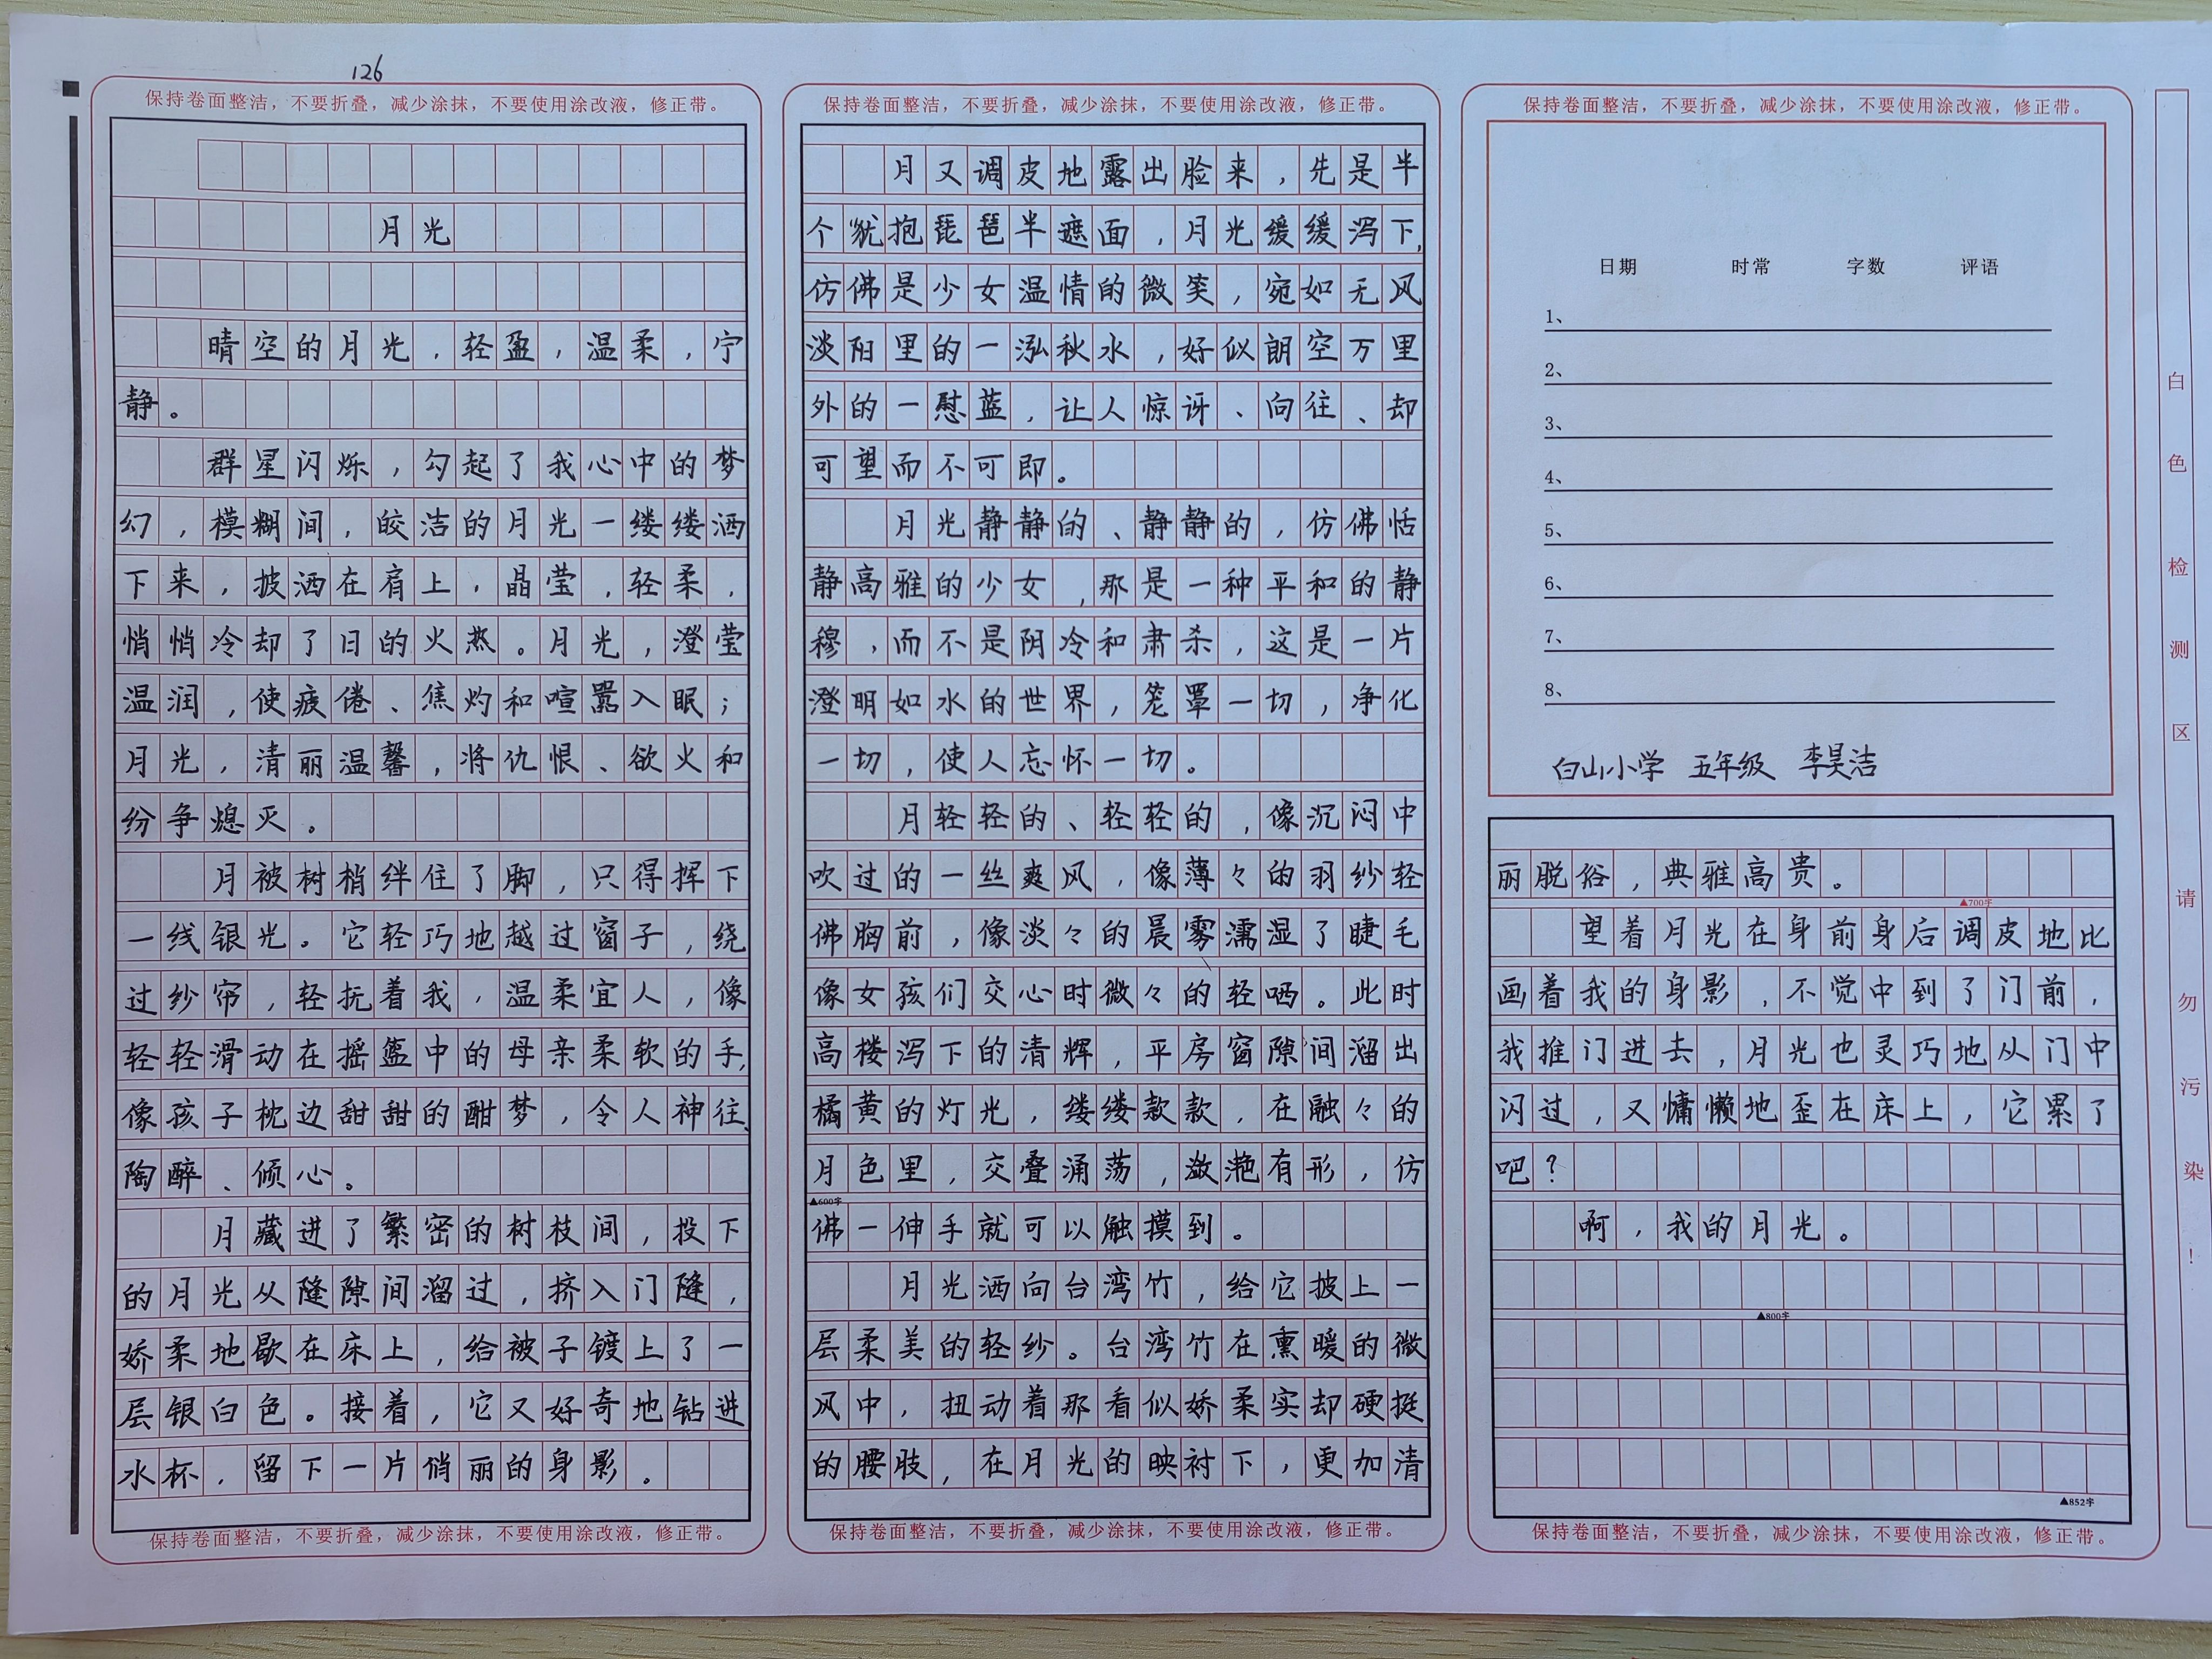 126
保持卷面整洁，不要折叠，减少涂抹，不要使用涂改液，修正带。
月光
晴空的月光，轻盈，温柔，宁
静。
群星闪烁，勾起了我心中的梦
幻，模糊间，皎洁的月光一缕缕洒
下来，披洒在肩上，晶莹，轻柔，
悄悄冷却了日的火热。月光，澄莹
温润，使疲倦、焦灼和喧嚣入眠；
月光，清丽温馨，将仇恨、欲火和
纷争熄灭。
月被树梢绊住了脚，只得挥下
一线银光。它轻巧地越过窗子，绕
过纱帘，轻抚着我，温柔宜人，像
轻轻滑动在摇篮中的母亲柔软的手，
像孩子枕边甜甜的酣梦，令人神往、
陶醉、倾心。
月藏进了繁密的树枝间，投下
的月光从隧隙间溜过，挤入门隧，
娇柔地歇在床上，给被子镀上了一
层银白色。接着，它又好奇地钻进
水杯，留下一片俏丽的身影。
保持卷面整洁，不要折叠，减少涂抹，不要使用涂改液，修正带。
保持卷面整洁，不要折叠，减少涂抹，不要使用涂改液，修正带。
月又调皮地露出脸来，先是半
个犹抱琵琶半遮面，月光缓缓泻下，
仿佛是少女温情的微笑，宛如无风
淡阳里的一泓秋水，好似朗空万里
外的一慰蓝，让人惊讶、向往、却
可望而不可即。
月光静静的、静静的，仿佛恬
静高雅的少女，那是一种平和的静
穆，而不是阴冷和肃杀，这是一片
澄明如水的世界，笼罩一切，净化
一切，使人忘怀一切。
月轻轻的、轻轻的，像沉闷中
吹过的一丝爽风，像薄々的羽纱轻
佛胸前，像淡々的晨雾濡湿了睫毛
像女孩们交心时微々的轻哂。此时
高楼泻下的清辉，平房窗隙间溜出
橘黄的灯光，缕缕款款，在融々的
月色里，交叠涌荡，潋滟有形，仿
▲600字
佛一伸手就可以触摸到。
月光洒向台湾竹，给它披上一
层柔美的轻纱。台湾竹在熏暖的微
风中，扭动着那看似娇柔实却硬挺
的腰肢，在月光的映衬下，更加清
保持卷面整洁，不要折叠，减少涂抹，不要使用涂改液，修正带。
保持卷面整洁，不要折叠，减少涂抹，不要使用涂改液，修正带。
日期 时常 字数 评语
1、
2、
3、
4、
5、
6、
7、
8、
白山小学 五年级 李昊洁
丽脱俗，典雅高贵。
▲700字
望着月光在身前身后调皮地比
画着我的身影，不觉中到了门前，
我推门进去，月光也灵巧地从门中
闪过，又慵懒地歪在床上，它累了
吧？
啊，我的月光。
▲800字
▲852字
保持卷面整洁，不要折叠，减少涂抹，不要使用涂改液，修正带。
白色检测区 请勿污染！